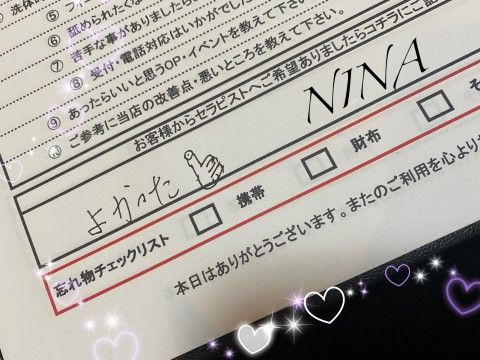 ⑥ 舐められた
⑦ 苦手な事がありましたら教えて下さい。
⑧ 受付・電話対応はいかがでした
⑨ あったらいいと思うOP・イベントを教えて下さい。
⑩ ご参考に当店の改善点・悪いところを教えて下さい。
お客様からセラピストへご希望ありましたらコチラにご記
NINA
よかった
忘れ物チェックリスト
携帯
財布
そ
本日はありがとうございます。またのご利用を心より